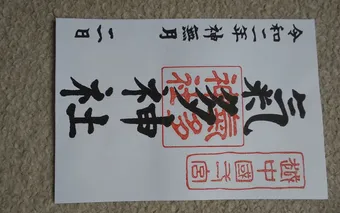 越中國一宮
氣多神社
氣多神社
令和二年神無月 二日